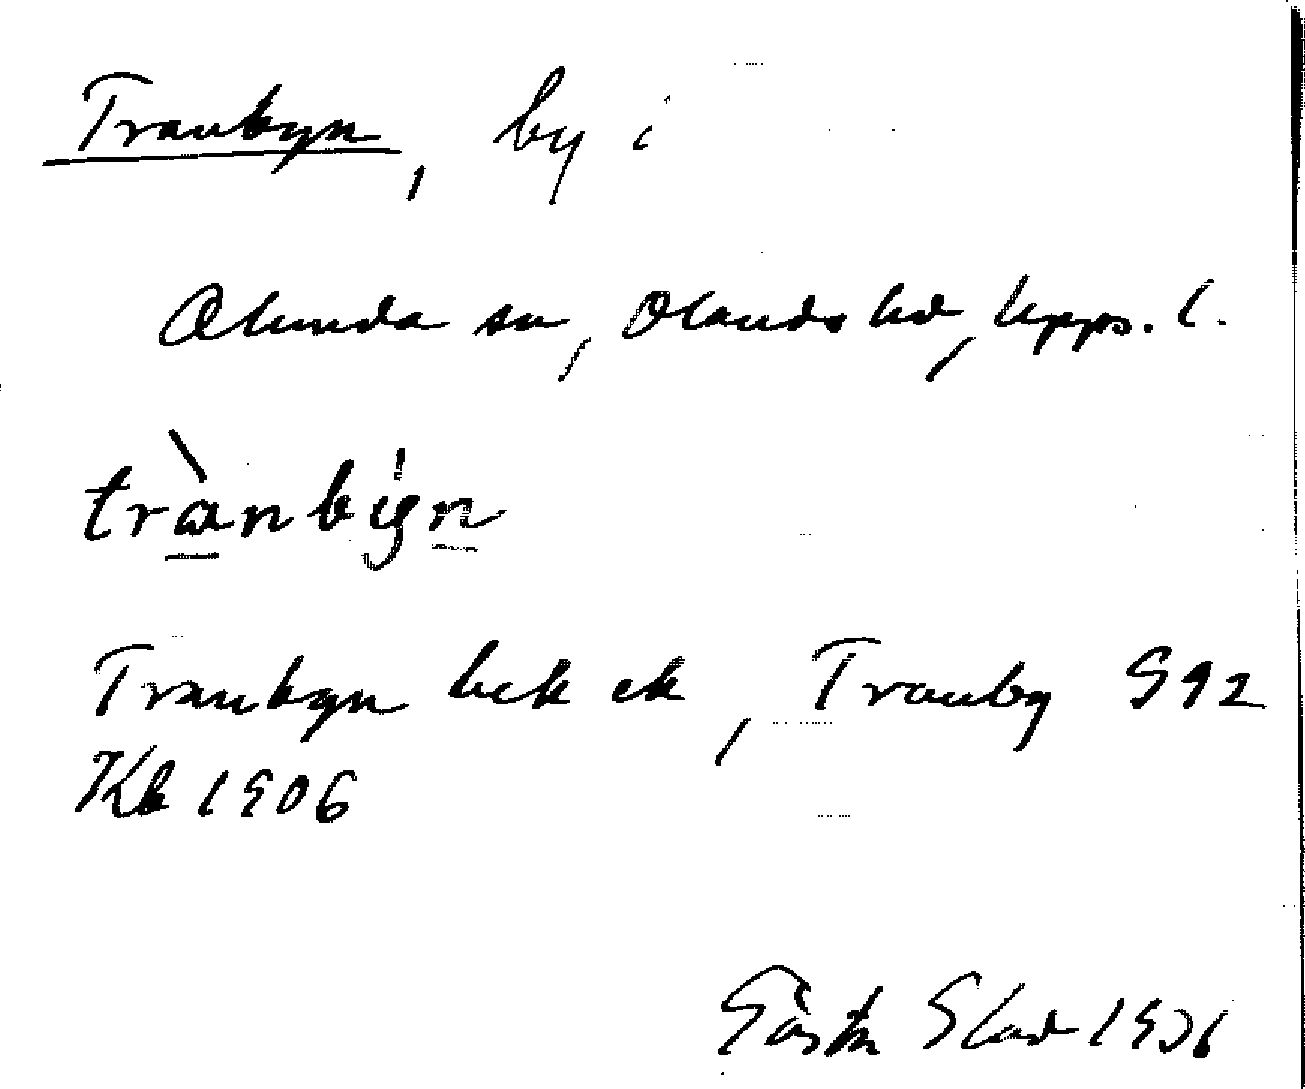 Tranbyn, by i
Alunda sn, Olands hd, Upps. l.
trànbýn
Tranbyn bek ek, Tranby G92
Kb 1906
Gösta Slad 1936